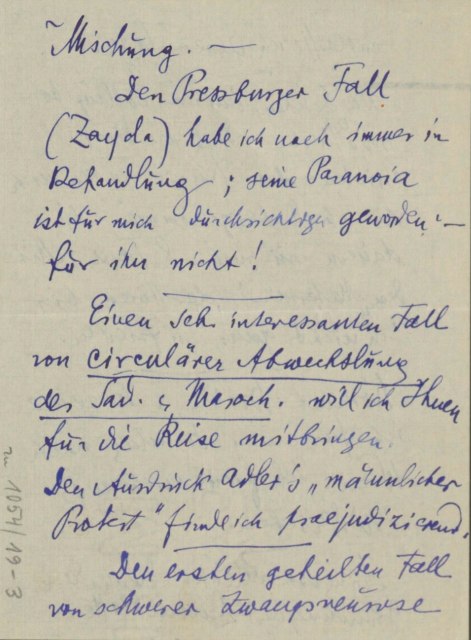 Mischung. —
Den Pressburger Fall
(Zayda) habe ich noch immer in
Behandlung; seine Paranoia
ist für mich durchsichtiger geworden: —
für ihn nicht!
Einen sehr interessanten Fall
von circulärer Abwechslung
des Sad. & Masoch. will ich Ihnen
für die Reise mitbringen.
Den Ausdruck Adler's „männlicher
Protest" finde ich praejudizierend.
Den ersten geheilten Fall
von schwerer Zwangsneurose
1054/19-3